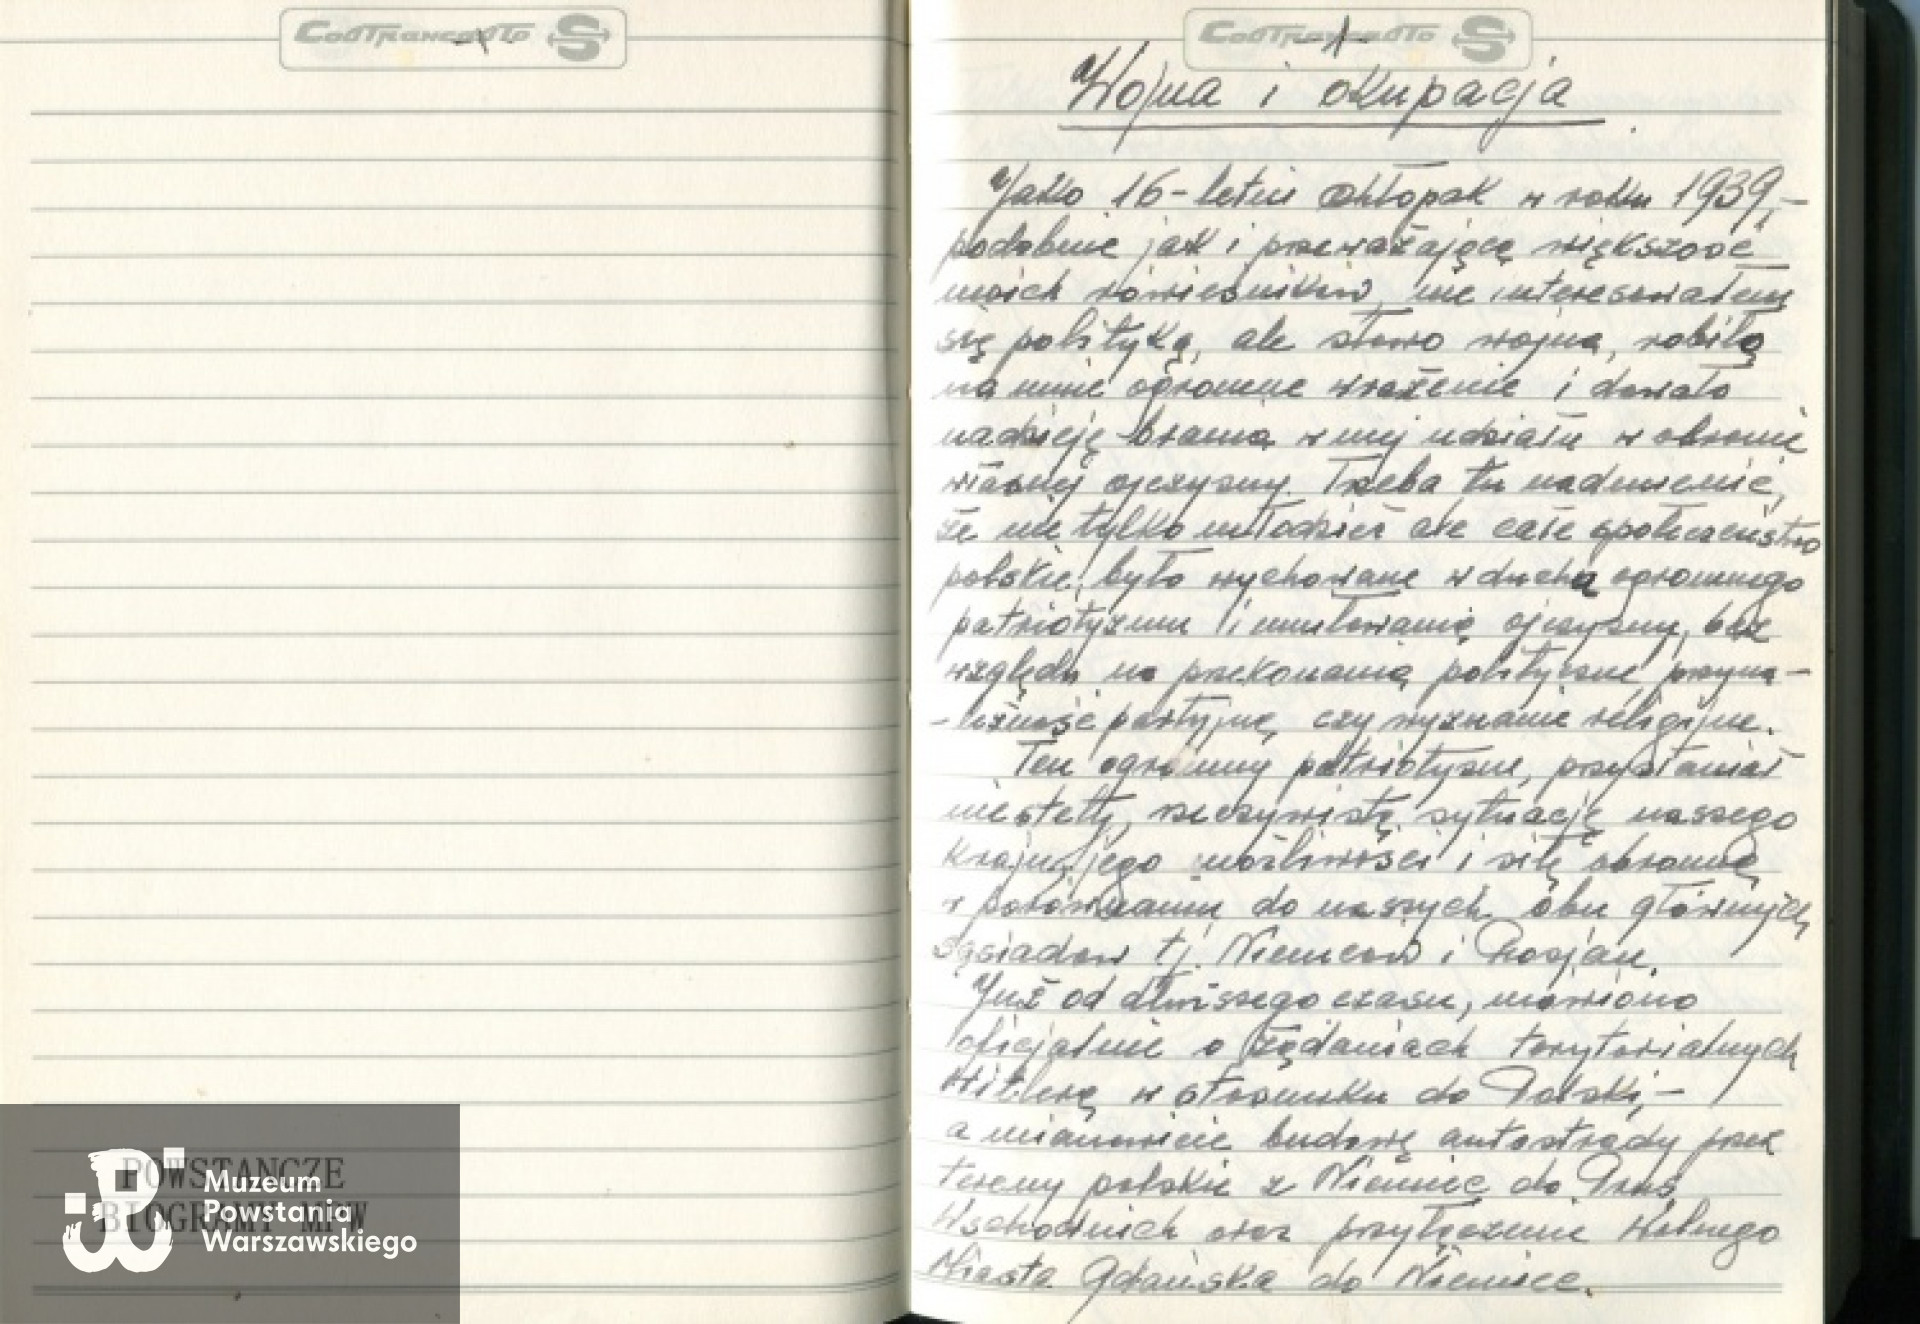 Совтрансавто S
-1-
POWSTAŃCZE
BIOGRAMY MPW
Muzeum
Powstania
Warszawskiego
Совтрансавто S
-1-
Wojna i okupacja
Jako 16-letni chłopak w roku 1939,-
podobnie jak i przeważającą większość
moich rówieśników, nie interesowałem
się polityką, ale słowo wojna, robiło
na mnie ogromne wrażenie i dawało
nadzieję brania w niej udziału w obronie
własnej ojczyzny. Trzeba tu nadmienić,
że nie tylko młodzież ale całe społeczeństwo
polskie, było wychowane w duchu ogromnego
patriotyzmu i umiłowania ojczyzny, bez
względu na przekonania polityczne, przyna-
-leżność partyjną, czy wyznanie religijne.
Ten ogromny patriotyzm, przysłaniał
niestety, rzeczywistą sytuację naszego
kraju, jego możliwości i siłę obronną
w porównaniu do naszych obu głównych
sąsiadów tj. Niemców i Rosjan.
Już od dłuższego czasu, mówiono
oficjalnie o żądaniach terytorialnych
Hitlera w stosunku do Polski,-
a mianowicie budowę autostrady przez
tereny polskie z Niemiec do Prus
Wschodnich oraz przyłączenie Wolnego
Miasta Gdańska do Niemiec.